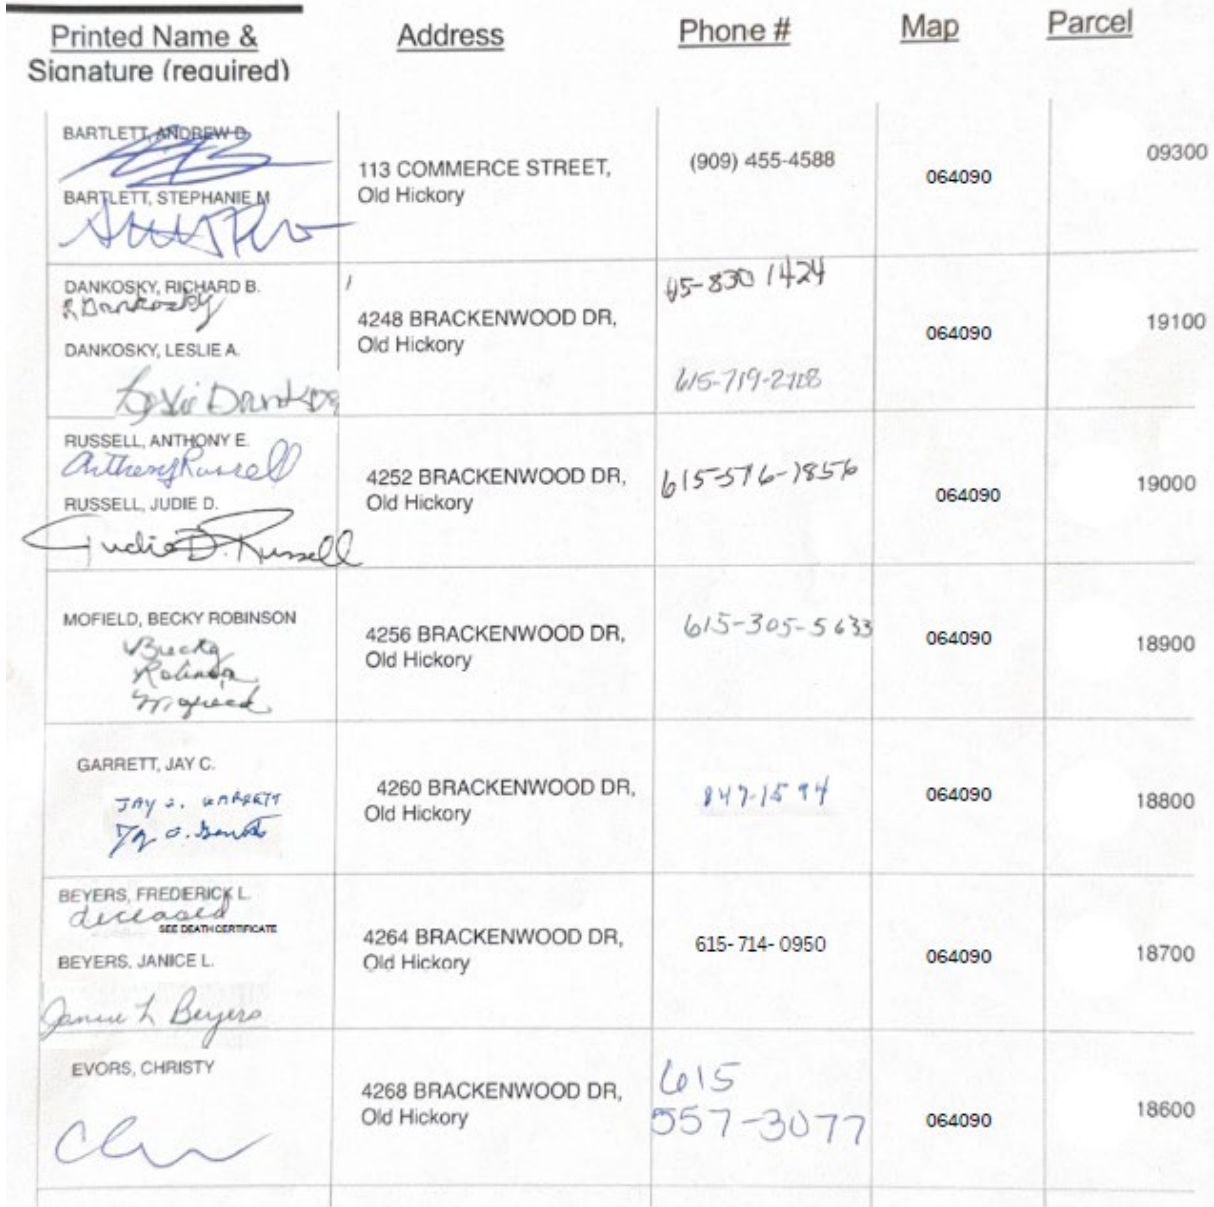 Printed Name &
Signature (required)
Address
Phone #
Map
Parcel
BARTLETT, ANDREW D.
BARTLETT, STEPHANIE M
113 COMMERCE STREET,
Old Hickory
(909) 455-4588
064090
09300
DANKOSKY, RICHARD B.
R Dankosky
DANKOSKY, LESLIE A.
Leslie Dankosky
4248 BRACKENWOOD DR,
Old Hickory
830 1424
615-719-2118
064090
19100
RUSSELL, ANTHONY E.
Anthony Russell
RUSSELL, JUDIE D.
Judie D. Russell
4252 BRACKENWOOD DR,
Old Hickory
615-516-7856
064090
19000
MOFIELD, BECKY ROBINSON
Becky
Robinson
Mofield
4256 BRACKENWOOD DR,
Old Hickory
615-305-5633
064090
18900
GARRETT, JAY C.
JAY C. GARRETT
Jay C. Garrett
4260 BRACKENWOOD DR,
Old Hickory
847-1594
064090
18800
BEYERS, FREDERICK L.
deceased
SEE DEATH CERTIFICATE
BEYERS, JANICE L.
Janice L Beyers
4264 BRACKENWOOD DR,
Old Hickory
615-714-0950
064090
18700
EVORS, CHRISTY
4268 BRACKENWOOD DR,
Old Hickory
615
557-3077
064090
18600